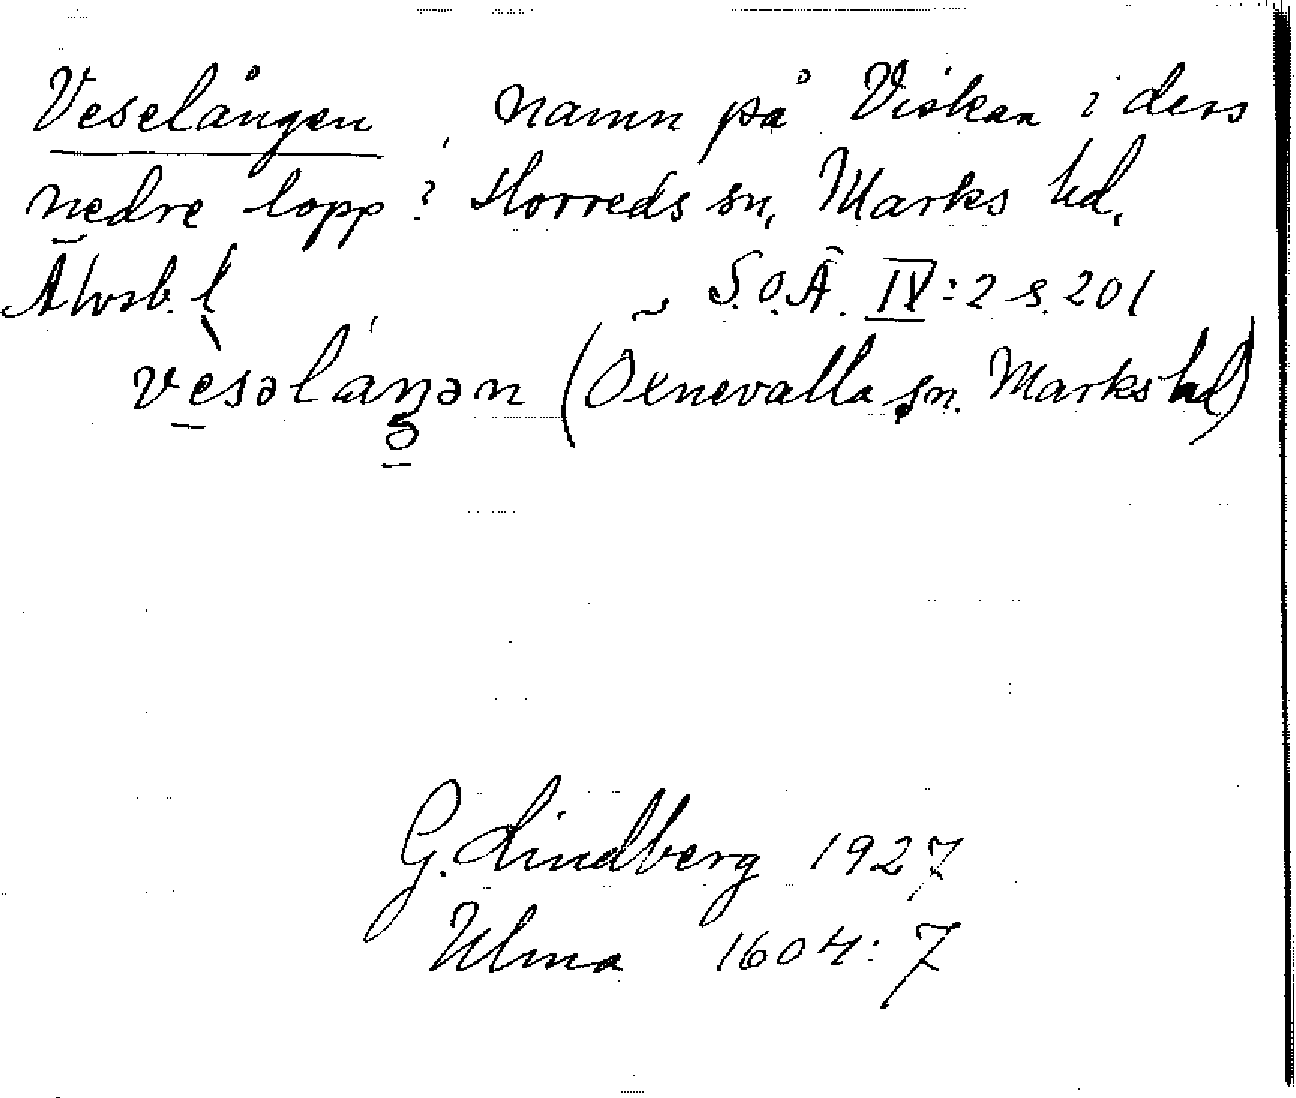 Veselången, namn på Viskan i dess
nedre lopp i Horreds sn, Marks hd.
Älvsb. l. S.O.Ä. IV:2 s. 201
vèsəlaŋən (Öxnevalla sn. Marks hd)
G. Lindberg 1927
Ulma 1604:7